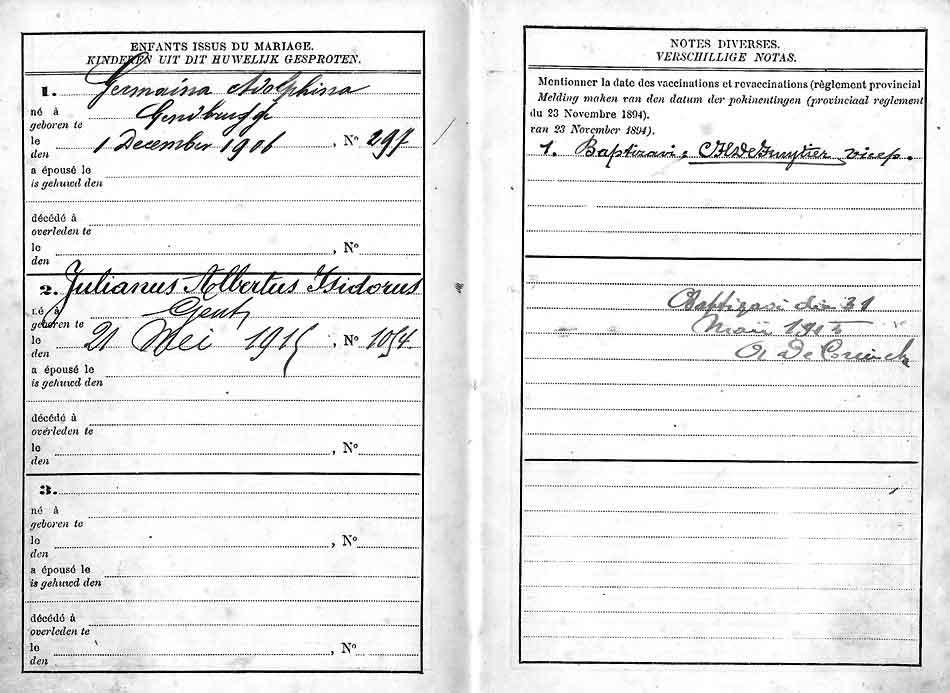 ENFANTS ISSUS DU MARIAGE.
KINDEREN UIT DIT HUWELIJK GESPROTEN.
1. Germaina Adolphina
né à
geboren te Gendbrugge
le
den 1 December 1906, N° 297
a épousé le
is gehuwd den
décédé à
overleden te
le
den , N°
2. Julianus Albertus Isidorus
né à
geboren te Gent
le
den 21 Mei 1915, N° 1054
a épousé le
is gehuwd den
décédé à
overleden te
le
den , N°
3.
né à
geboren te
le
den , N°
a épousé le
is gehuwd den
décédé à
overleden te
le
den , N°
NOTES DIVERSES.
VERSCHILLIGE NOTAS.
Mentionner la date des vaccinations et revaccinations (règlement provincial
Melding maken van den datum der pokinentingen (provinciaal reglement
du 23 Novembre 1894).
van 23 November 1894).
1. Baptizavi: vicep.
Baptizavi die 31
Maii 1915
A De Coninck